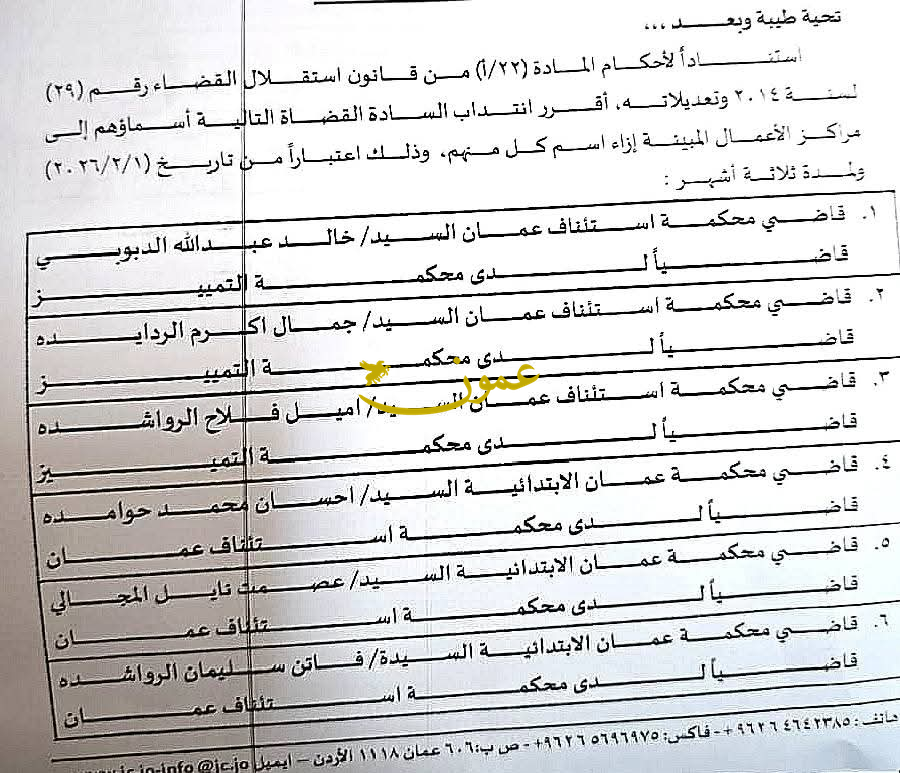 تحية طيبة وبعد ...
استناداً لأحكام المادة (٢٢/أ) من قانون استقلال القضاء رقم (٢٩)
لسنة ٢٠١٤ وتعديلاته، أقرر انتداب السادة القضاة التالية أسماؤهم إلى
مراكز الأعمال المبينة إزاء اسم كل منهم، وذلك اعتباراً من تاريخ (٢٠٢٦/٢/١)
ولمدة ثلاثة أشهر :
١. قاضي محكمة استئناف عمان السيد/ خالد عبدالله الدبوبي
قاضياً لدى محكمة التمييز
٢. قاضي محكمة استئناف عمان السيد/ جمال اكرم الردايده
قاضياً لدى محكمة التمييز
عمون
٣. قاضي محكمة استئناف عمان السيد/ اميل فلاح الرواشده
قاضياً لدى محكمة التمييز
٤. قاضي محكمة عمان الابتدائية السيد/ احسان محمد حوامده
قاضياً لدى محكمة استئناف عمان
٥. قاضي محكمة عمان الابتدائية السيد/ عصمت نايل المجالي
قاضياً لدى محكمة استئناف عمان
٦. قاضي محكمة عمان الابتدائية السيدة/ فاتن سليمان الرواشده
قاضياً لدى محكمة استئناف عمان
هاتف: ٩٦٢٦٤٦٤٢٣٨٥+ - فاكس: ٩٦٢٦٥٦٩٦٩٧٥+ - ص ب: ٦٠٦ عمان ١١١٨ الأردن - ايميل info@jc.jo